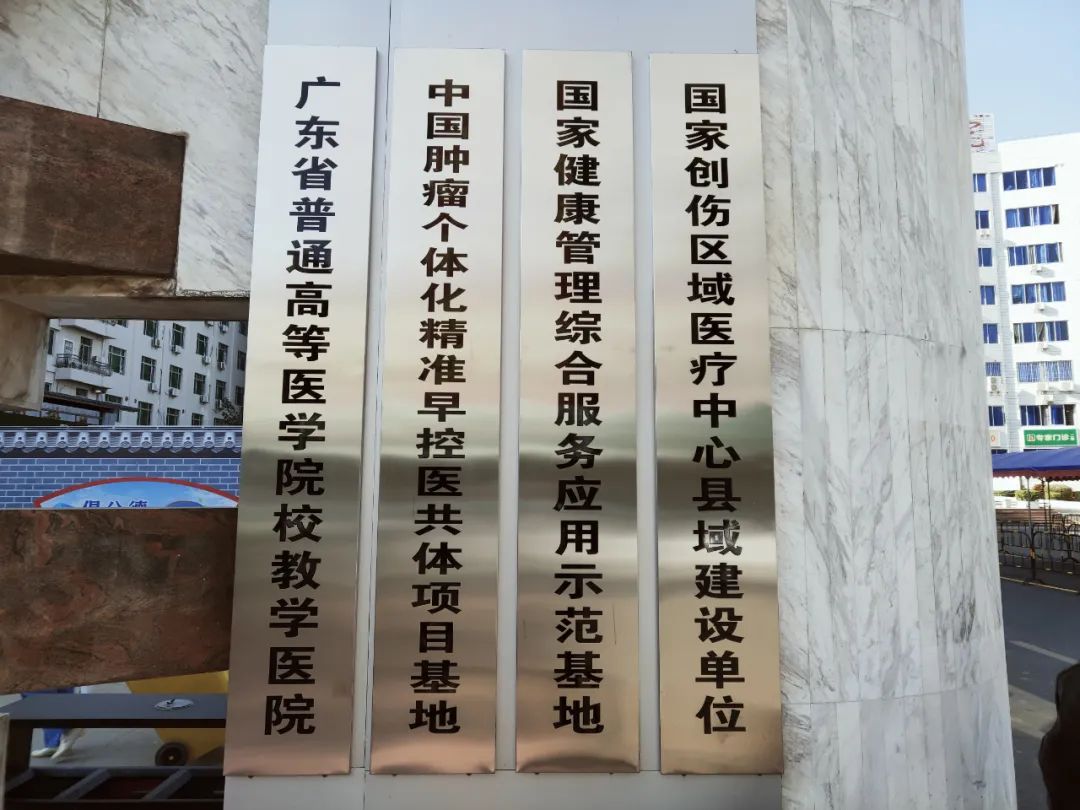 广东省普通高等医学院校教学医院
中国肿瘤个体化精准早控医共体项目基地
国家健康管理综合服务应用示范基地
国家创伤区域医疗中心县域建设单位
专家门诊